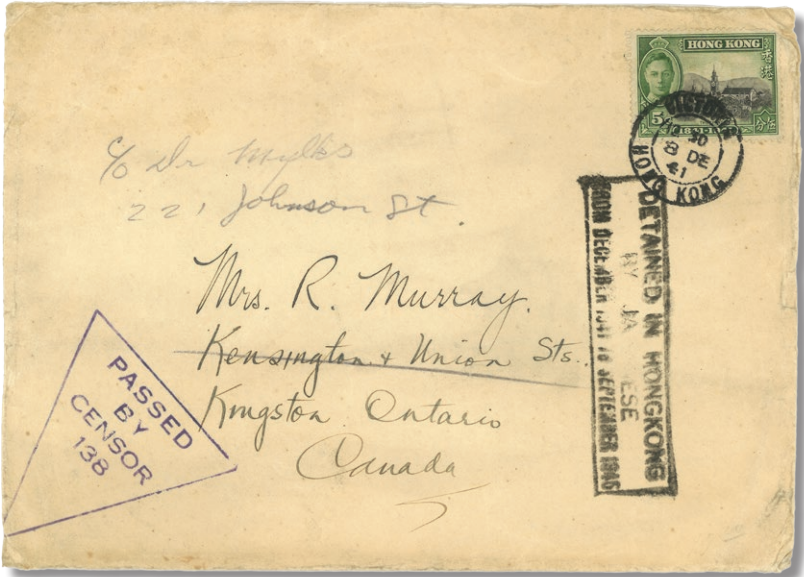 HONG KONG
香港
5
VICTORIA
8 DE
41
HONG KONG
c/o Dr Mylks
221 Johnson St.
Mrs. R. Murray.
Kensington & Union Sts.
Kingston Ontario
Canada
PASSED
BY
CENSOR
138
DETAINED IN HONGKONG
BY JA ESE
FROM DECEMBER 1941 TO SEPTEMBER 1945